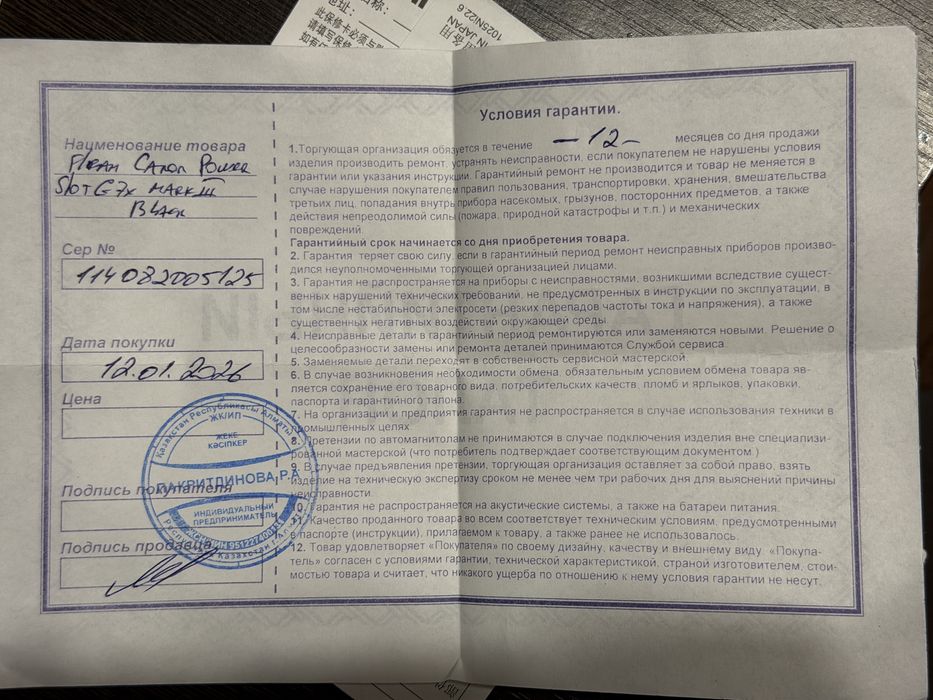 名称：
地址：
此保修卡必须与
请填写保修
如有任
备用
IN JAPAN
1025NI22.6
Условия гарантии.
Наименование товара
Canon Power
Shot G7x MARK III
Black
Сер №
114082005125
Дата покупки
12.01.2026
Цена
Подпись покупателя
Подпись продавца
Казахстан Республикасы Алматы
ЖК/ИП
ЖЕКЕ
КӘСІПКЕР
ПАКРИТДИНОВА Р.А
ИНДИВИДУАЛЬНЫЙ
ПРЕДПРИНИМАТЕЛЬ
1.Торгующая организация обязуется в течение -12- месяцев со дня продажи
изделия производить ремонт, устранять неисправности, если покупателем не нарушены условия
гарантии или указания инструкции. Гарантийный ремонт не производится и товар не меняется в
случае нарушения покупателем правил пользования, транспортировки, хранения, вмешательства
третьих лиц, попадания внутрь прибора насекомых, грызунов, посторонних предметов, а также
действия непреодолимой силы (пожара, природной катастрофы и т.п.) и механических
повреждений.
Гарантийный срок начинается со дня приобретения товара.
2. Гарантия теряет свою силу, если в гарантийный период ремонт неисправных приборов произво-
дился неуполномоченными торгующей организацией лицами.
3. Гарантия не распространяется на приборы с неисправностями, возникшими вследствие сущест-
венных нарушений технических требований, не предусмотренных в инструкции по эксплуатации, в
том числе нестабильности электросети (резких перепадов частоты тока и напряжения), а также
существенных негативных воздействий окружающей среды.
4. Неисправные детали в гарантийный период ремонтируются или заменяются новыми. Решение о
целесообразности замены или ремонта деталей принимаются Службой сервиса.
5. Заменяемые детали переходят в собственность сервисной мастерской.
6. В случае возникновения необходимости обмена, обязательным условием обмена товара яв-
ляется сохранение его товарного вида, потребительских качеств, пломб и ярлыков, упаковки,
паспорта и гарантийного талона.
7. На организации и предприятия гарантия не распространяется в случае использования техники в
промышленных целях
8. Претензии по автомагнитолам не принимаются в случае подключения изделия вне специализи-
рованной мастерской (что потребитель подтверждает соответствующим документом.)
9. В случае предъявления претензии, торгующая организация оставляет за собой право, взять
изделие на техническую экспертизу сроком не менее чем три рабочих дня для выяснений причины
неисправности.
10. Гарантия не распространяется на акустические системы, а также на батареи питания.
11. Качество проданного товара во всем соответствует техническим условиям, предусмотренными
в паспорте (инструкции), прилагаемом к товару, а также ранее не использовалось.
12. Товар удовлетворяет «Покупателя» по своему дизайну, качеству и внешнему виду. «Покупа-
тель» согласен с условиями гарантии, технической характеристикой, страной изготовителем, стои-
мостью товара и считает, что никакого ущерба по отношению к нему условия гарантии не несут.